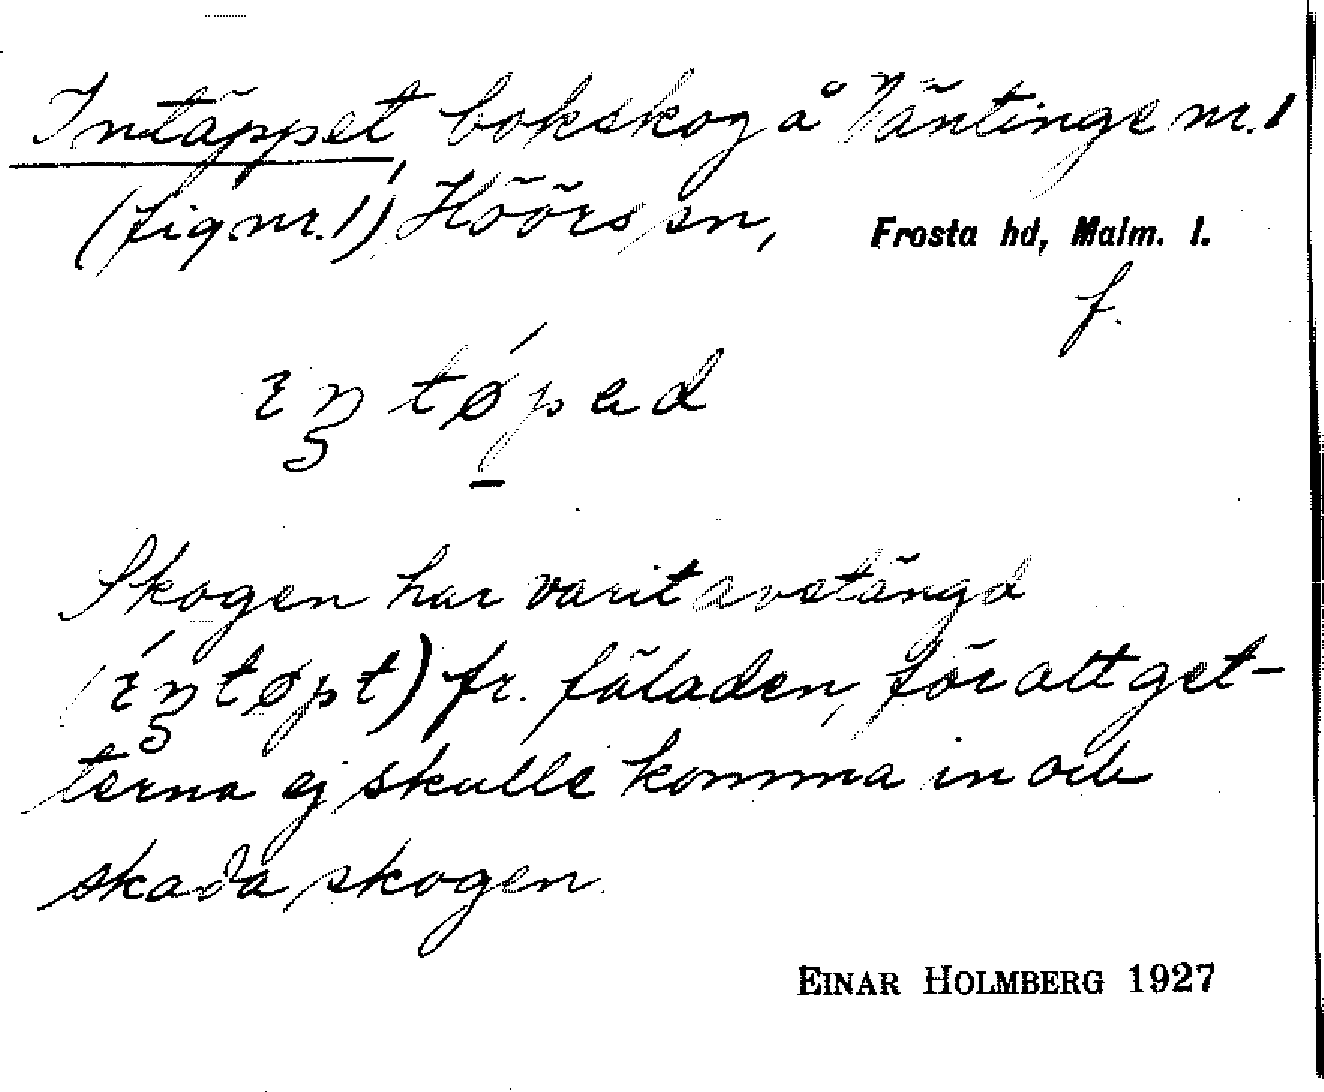 Intäppet, bokskog å Väntinge nr. 1
(fig nr. 1), Höörs sn, Frosta hd, Malm. l.
f.
Skogen har varit avstängd
fr. fäladen, för att get-
terna ej skulle komma in och
skada skogen.
EINAR HOLMBERG 1927